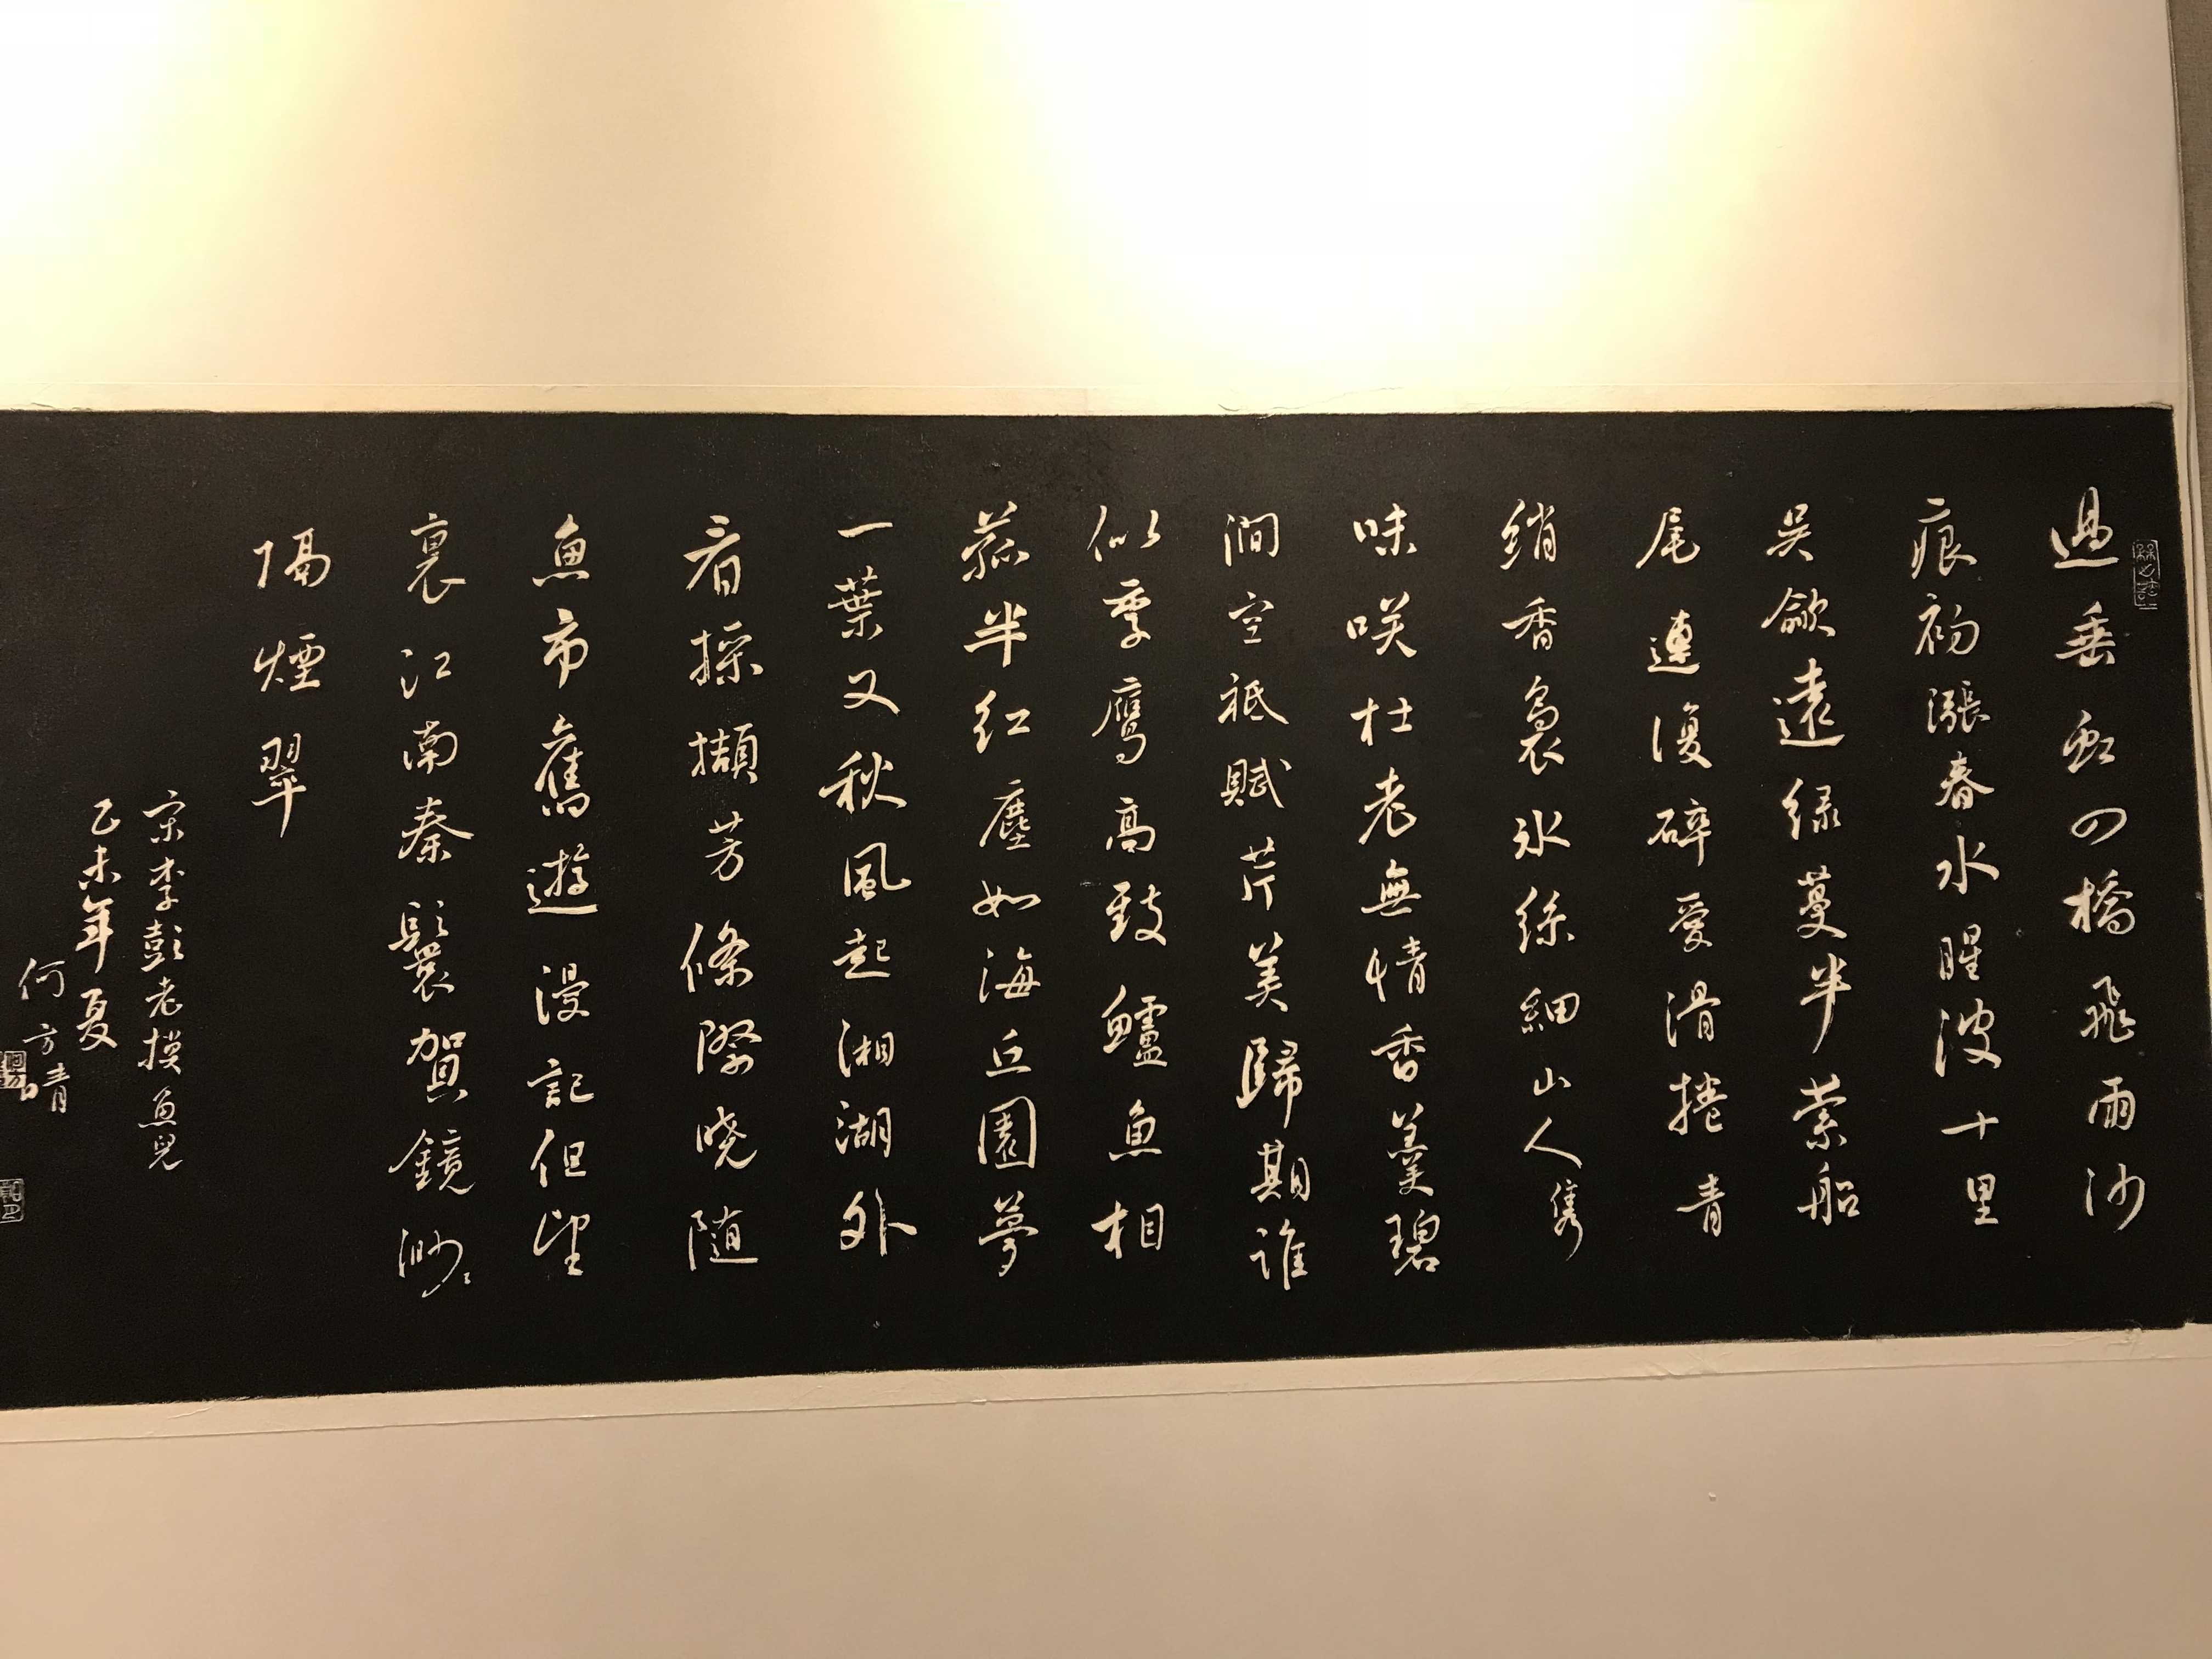 過垂虹四橋飛雨沙
痕初漲春水腥波十里
吳歈遠綠蔓半縈船
尾連復碎愛滑捲青
綃香裊冰絲細山人雋
味咲杜老無情香羹碧
澗空祗賦芹美歸期誰
似季鷹高致鱸魚相
菰半紅塵如海丘園夢
一葉又秋風起湘湖外
看採擷芳條際曉随
魚市舊遊漫記但望
裏江南秦鬟賀鏡渺〻
隔煙翠
宋李彭老摸魚兒
乙未年夏
何方晴